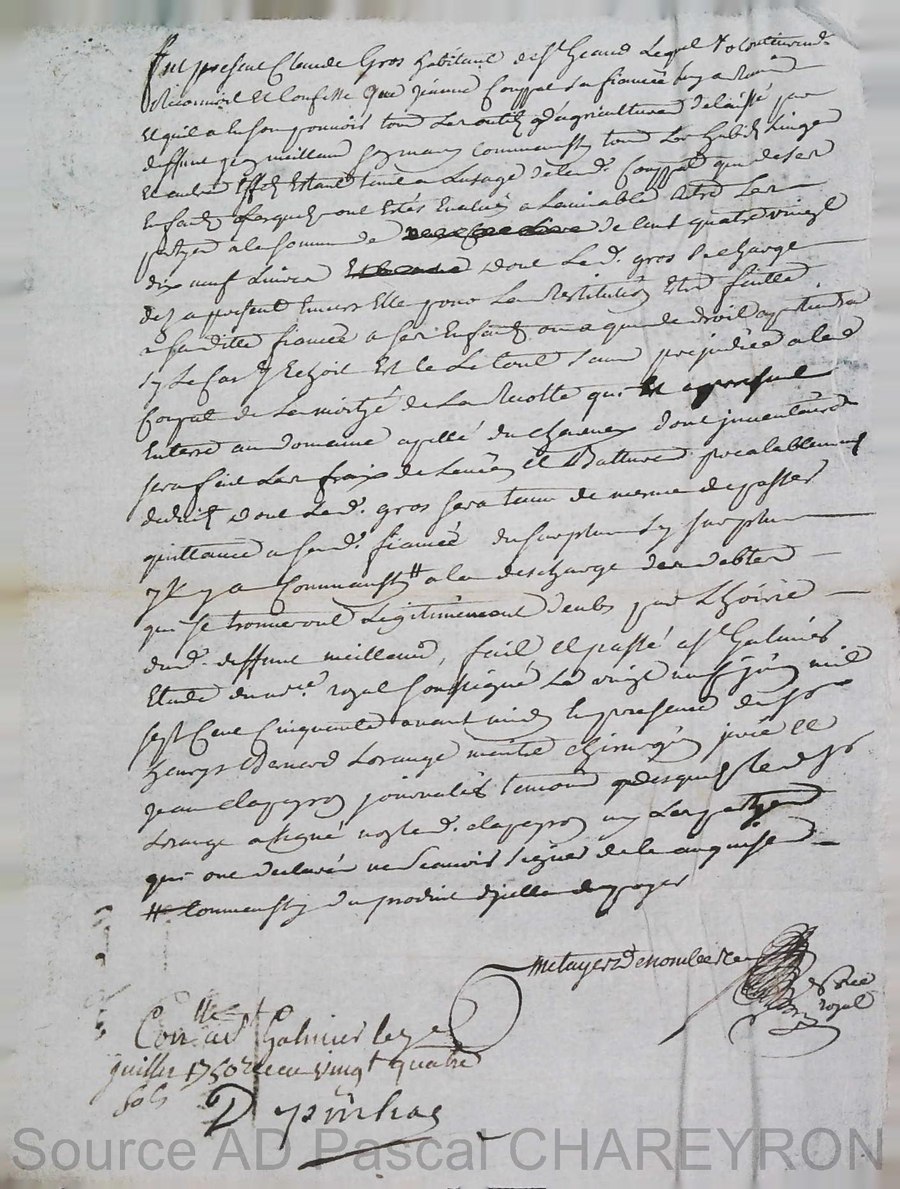 Fut present Claude Gros habitant de St Geand Lequel volontairem.
Reconnoit et confesse que Jeanne Couppat sa fiancée luy a Remi
Et quil a en son pouvoir tous Les outils d'agriculture delaissé par
deffunt meilland son mary tous Les habits Linge
Et autre Effets Estant tant a Lusage de lad. Couppat que de ses
Enfans Lesquels ont Estés Evalués a Lamiable Entre Les
partyes a la somme de de Cent quatre vingt
dix neuf Livres dont Le d. gros se charge
des a present Envers Elle pour La Restitution Estre faitte
a sa ditte fiancée a ses Enfans ou a qui de droit apartiendra
sy Le cas y Echoit Et ce Le tout sans prejudice a lad
Coupat de La moityé de La Recolte qui Est a present
Enterre au domaine apellé du dont inventaire
sera fait Les fraix de Levée Et Batture prealablement
deduit dont Led. gros sera tenu de meme de passer
quittance a sa d. fiancée du surplus sy surplus
y a a la descharge des debtes
qui se trouveront Legitimement deubs par L'hoirie
dud. deffunt meilland, fait Et passé a St Galmier
Etude du no.re royal soussigné Le vingt neuf juin mil
sept Cent Cinquante avant midy En presence de sr
henry Lorange maitre chirurgien juré Et
Jean clapeyron journalier temoins desquels le d. sr
Lorange a signé non led. clapeyron ny Les partyes
qui ont declarés ne scavoir signer de ce enquis
du produit d'icelle
no.re
royal
Con.lle a St Galmier le 7e
juillet 1750 Receu vingt quatre
sols
Source AD Pascal CHAREYRON